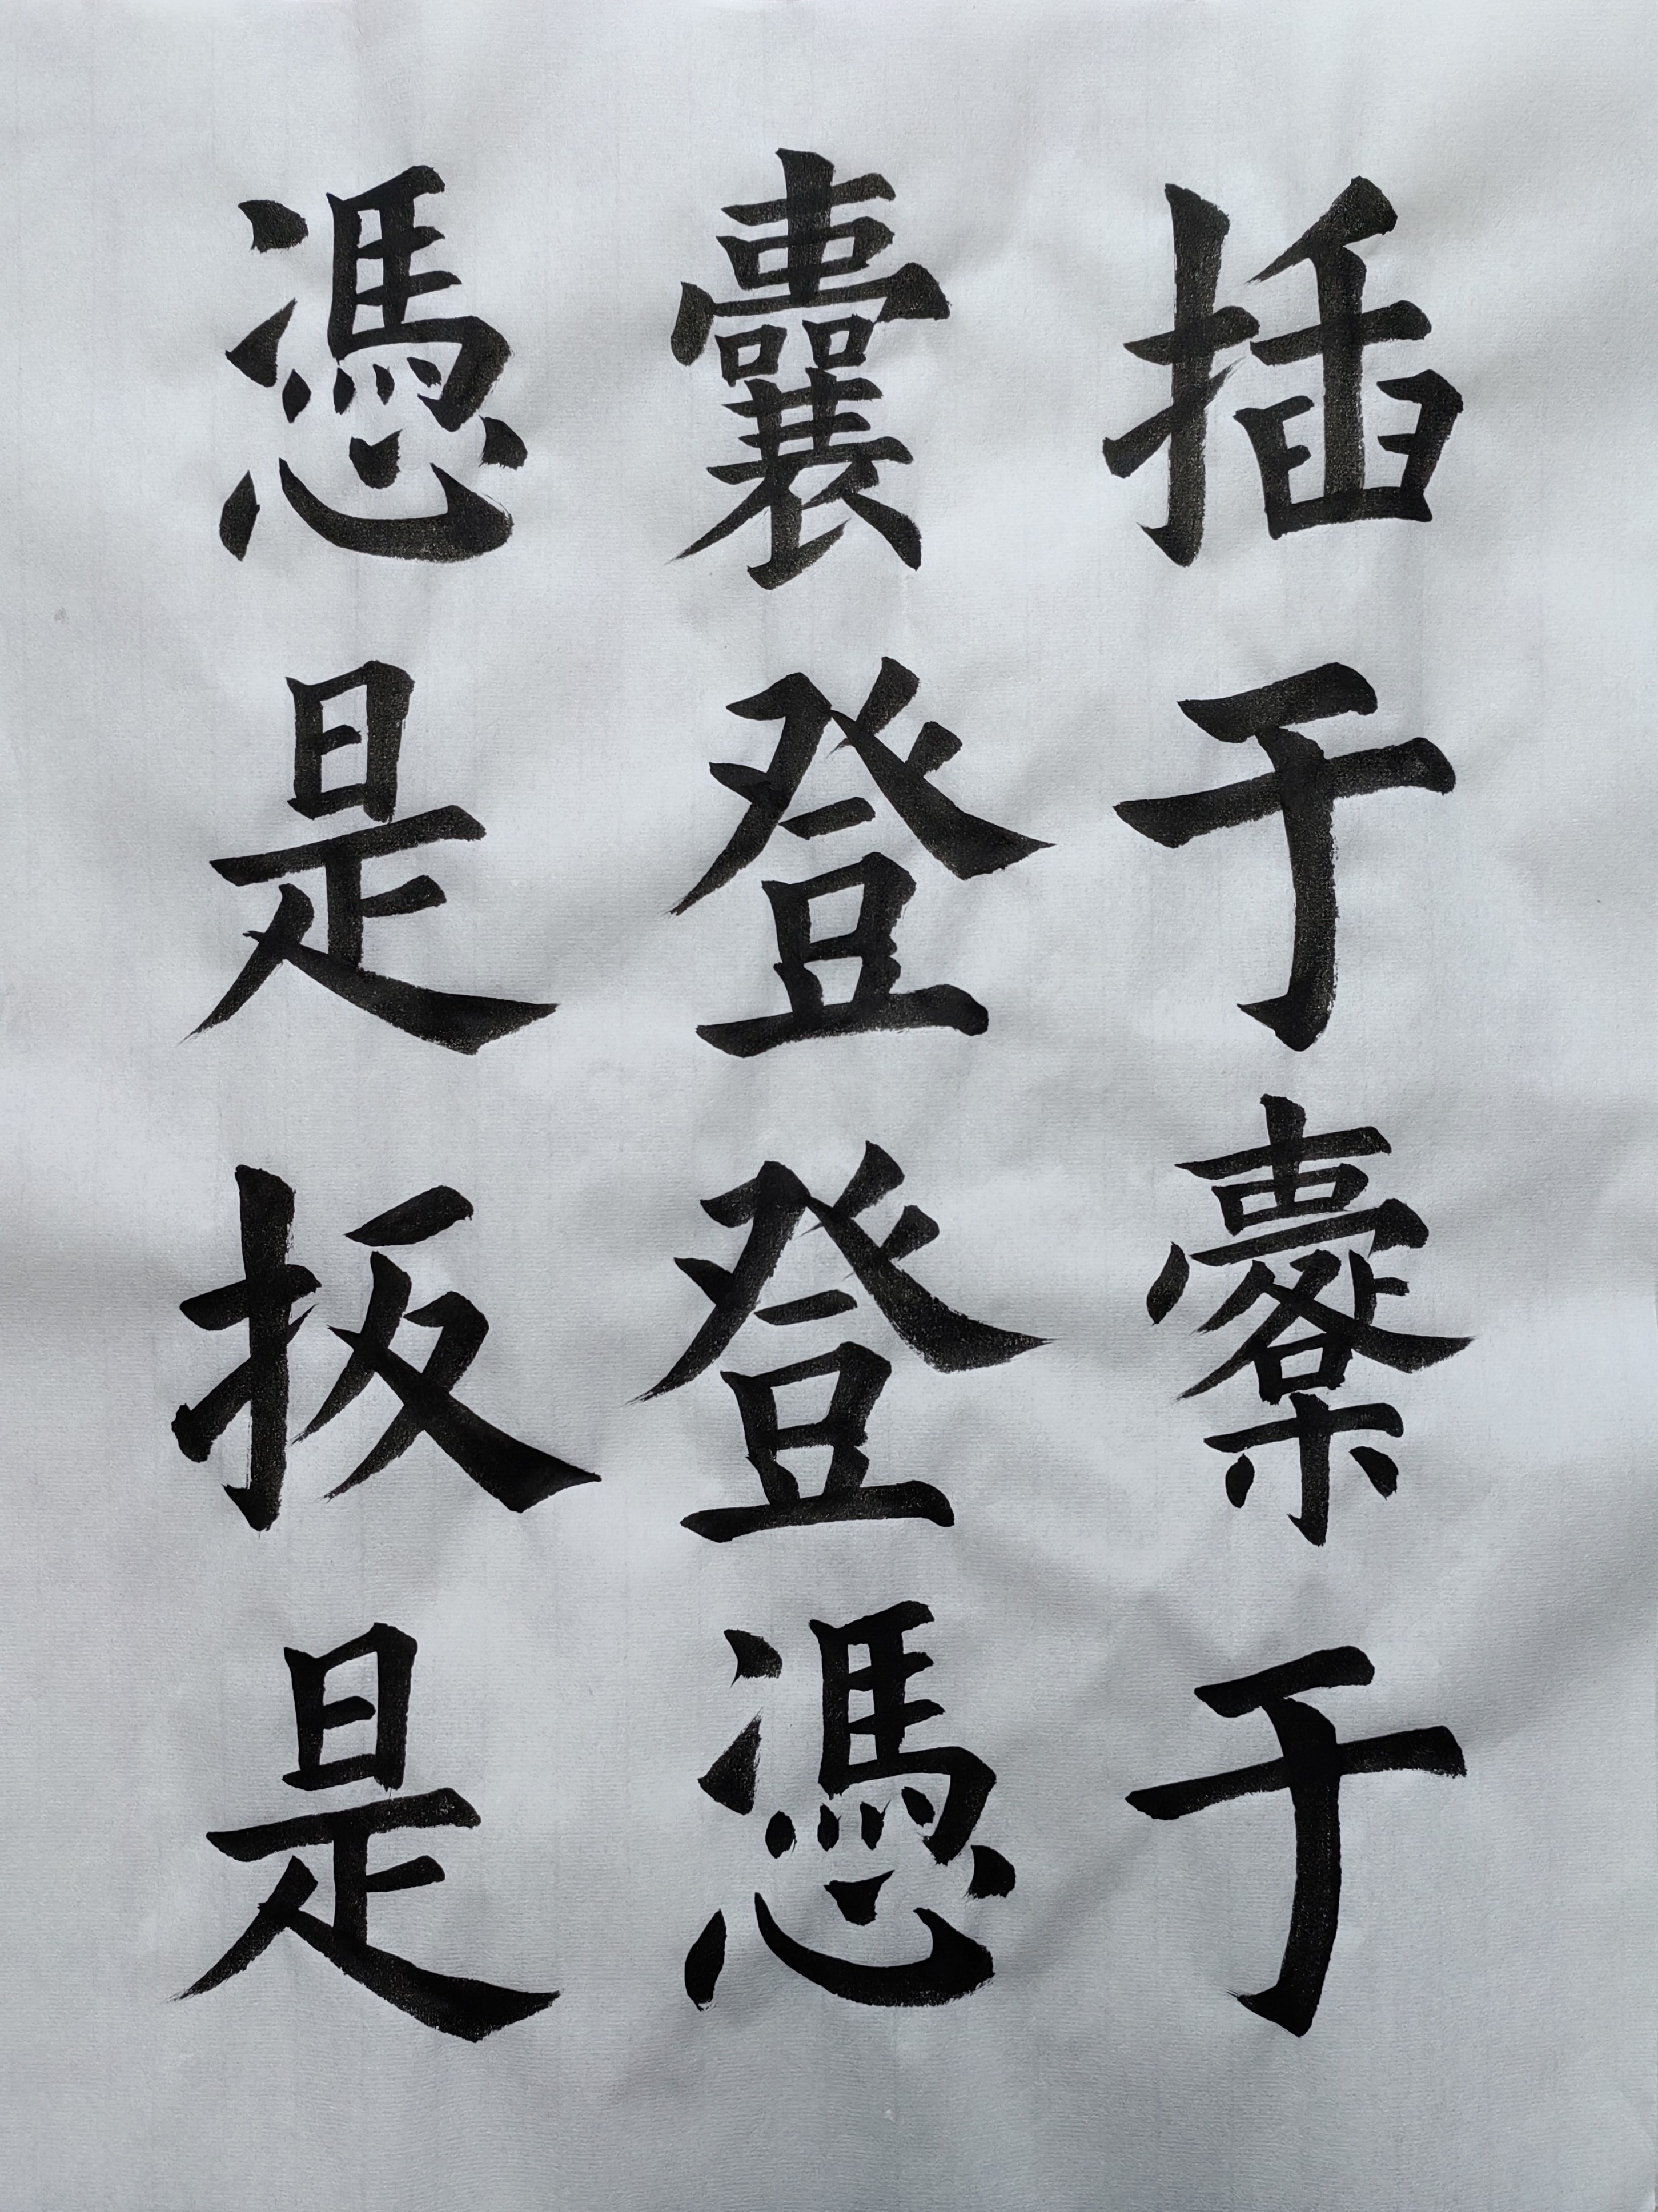 插于櫜于
囊登登憑
憑是扳是